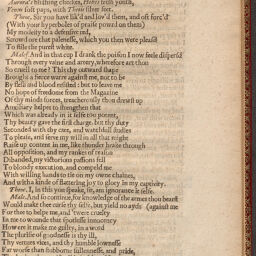 Aurora's blushing cheekes, Hebes fresh youth,
From soft paps, with Thetis silver feet.
Phoe. Sir you have lik'd and lov'd them, and oft forc'd
(With your hyperboles of praise powrd on them)
My modesty to a defensive red,
Strowd ore that palenesse, which you then were pleasd
To stile the purest white.
Male. And in that cup I drank the poison I now feele dispersd
Through every vaine and artery, wherefore art thou
So cruell to me? This thy outward shape
Brought a fierce warre against me, not to be
By flesh and blood resisted: but to leave me
No hope of freedome from the Magazine
Of thy minds forces, treacherously thou drewst up
Auxiliary helpes to strengthen that
Which was already in it selfe too potent,
Thy beauty gave the first charge, but thy duty
Seconded with thy care, and watchfull studies
To please, and serve my will in all that might
Raise up content in me, like thunder brake through
All opposition, and my ranckes of reason
Disbanded, my victorious passions fell
To bloody execution, and compeld me
With willing hands to tie on my owne chaines,
And with a kinde of flattering joy to glory in my captivity.
I, in this you speake, sir, am ignorance it selfe.
Male. And so continue, for knowledge of the armes thou bearst
Would make thee curse thy selfe, but yeild no ayds (against me
For thee to helpe me, and 'twere cruelty
In me to wounde that spotlesse innocency
How ere it make me guilty, in a word
The plurisie of goodnesse is thy ill,
Thy vertues vices, and thy humble lownesse
Far worse than stubborne sullennesse, and pride,